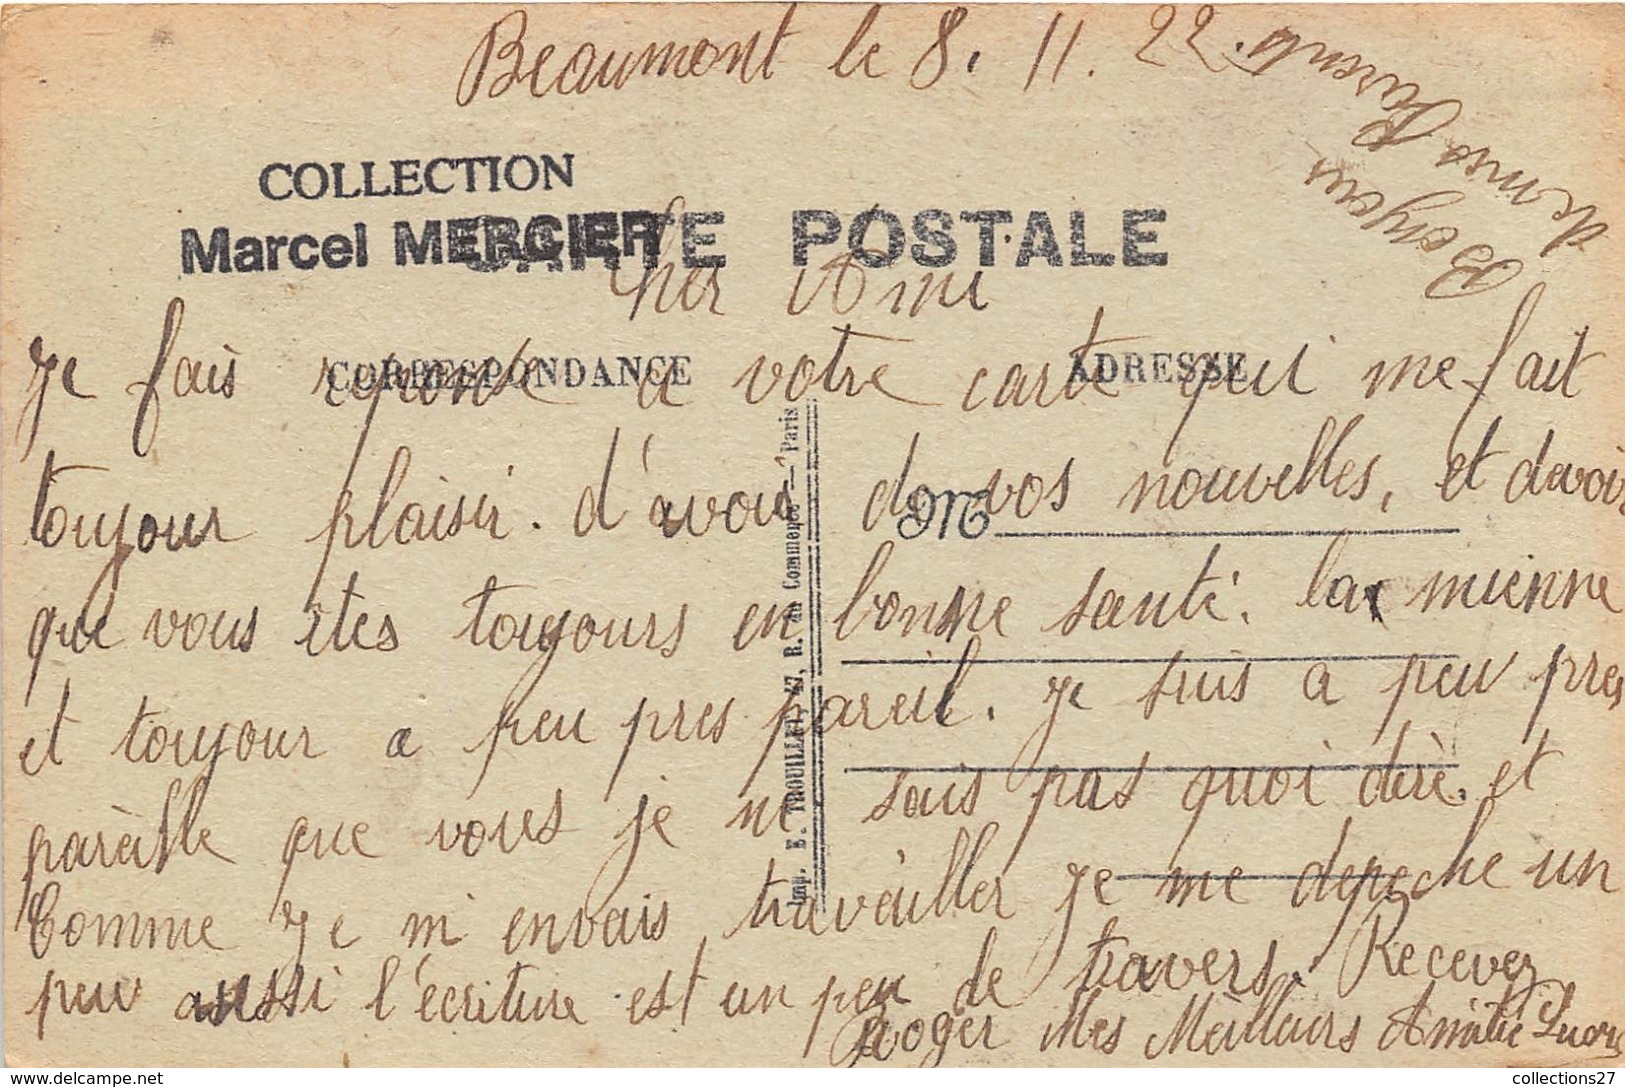 Beaumont le 8. 11. 22.
Bonjour
de mes Parents
COLLECTION
Marcel MERCIER
CARTE POSTALE
Cher Ami
CORRESPONDANCE
ADRESSE
Je fais reponse a votre carte qui me fait
toujour plaisir. d'avoir de vos nouvelles, et de voir
que vous êtes toujours en bonne santé. la mienne
et toujour a peu pres pareil. Je suis a peu pres
pareille que vous je ne sais pas quoi dire. et
Comme Je m'en vais travailler Je me depeche un
peu aussi l'écriture est un peu de travers. Recevez
Roger Mes Meilleurs Amitié
M
Imp. E. TROUILLET, 47, R. du Commerce — Paris
collections27